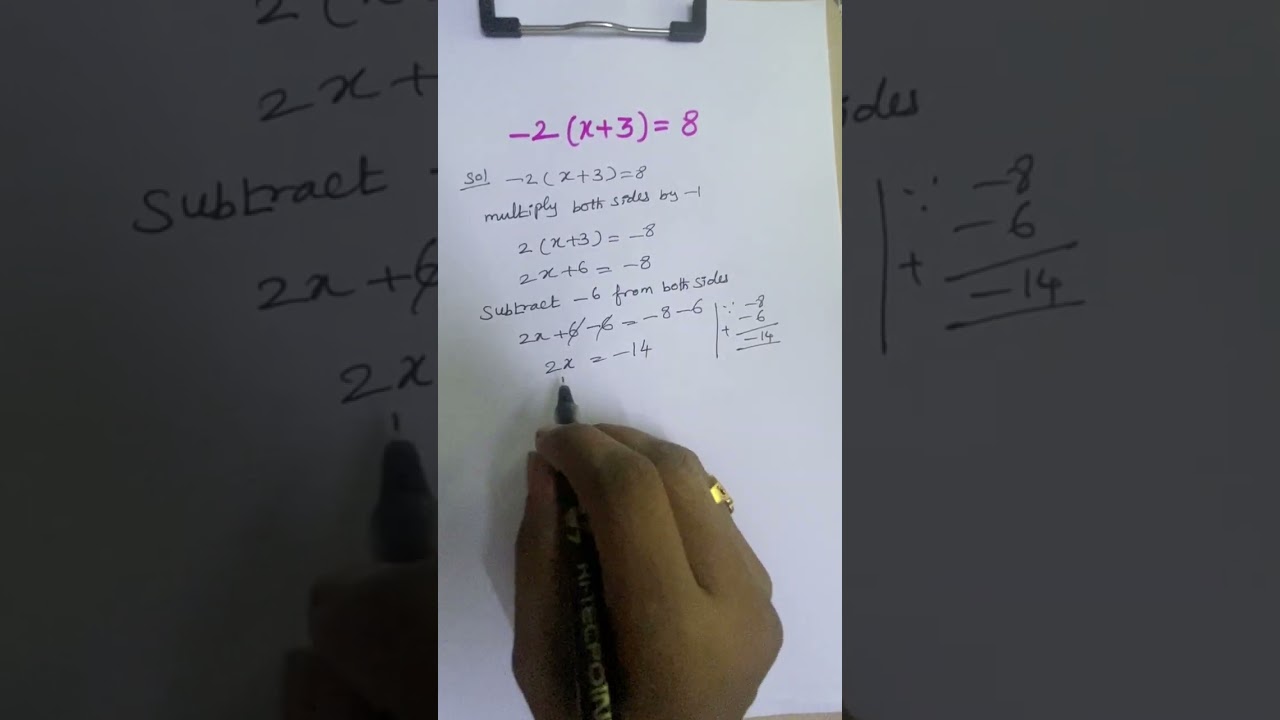 -2(x+3)=8
Sol -2(x+3)=8
multiply both sides by -1
2(x+3)=-8
2x+6=-8
Subtract -6 from both sides
2x+6-6=-8-6
∵ -8
-6
+
-14
2x=-14
V7 HI-TECPOIN